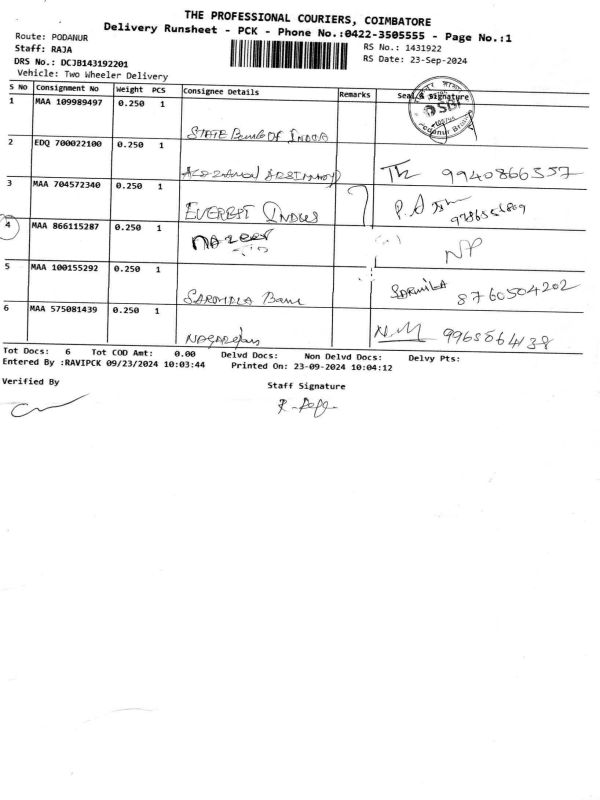 THE PROFESSIONAL COURIERS, COIMBATORE
Delivery Runsheet - PCK - Phone No.:0422-3505555 - Page No.:1
Route: PODANUR
RS No.: 1431922
Staff: RAJA
RS Date: 23-Sep-2024
DRS No.: DCJB143192201
Vehicle: Two Wheeler Delivery
S No Consignment No Weight PCS Consignee Details Remarks Seal & Signature
1 MAA 109989497 0.250 1
STATE Bank Of INDIA
SBI
2 EDQ 700022100 0.250 1
9940866557
3 MAA 704572340 0.250 1
EVEREST
P.A
4 MAA 866115287 0.250 1
Nazeer
NP
5 MAA 100155292 0.250 1
Bank
SARMILA 8760504202
6 MAA 575081439 0.250 1
N.M
Tot Docs: 6 Tot COD Amt: 0.00 Delvd Docs: Non Delvd Docs: Delvy Pts:
Entered By :RAVIPCK 09/23/2024 10:03:44 Printed On: 23-09-2024 10:04:12
Verified By
Staff Signature